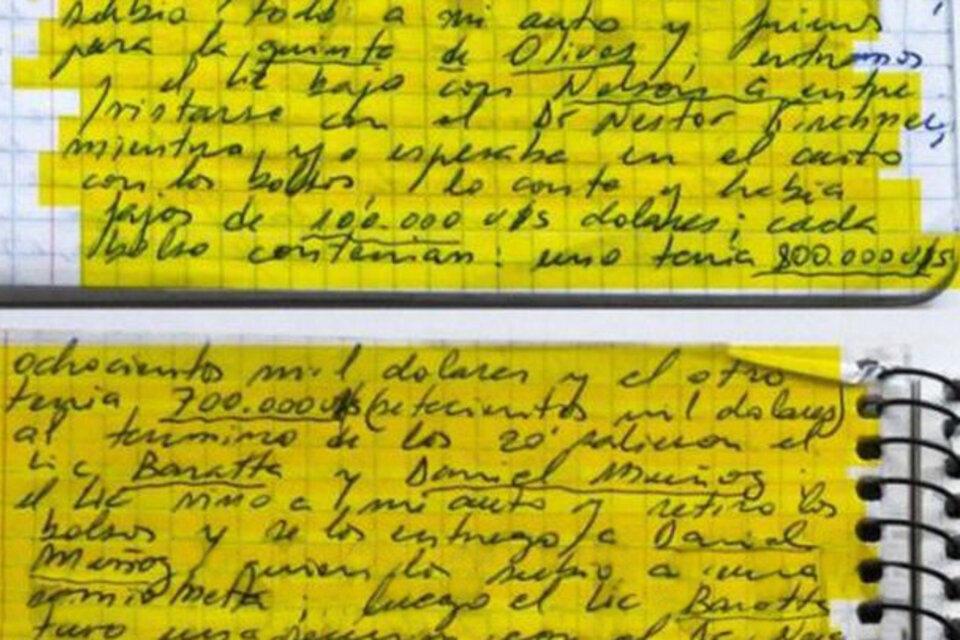 subio todo a mi auto y fuimos
para la quinta de Olivos; entramos
y el Lic bajo con Nelson a entre
/vistarse con el Dr Nestor Kirchner,
mientras yo esperaba en el auto
con los bolsos, lo conte y habia
fajos de 100.000 U$S dolares; cada
bolso contenian: uno tenia 800.000 U$S
ochocientos mil dolares y el otro
tenia 700.000 U$S (setecientos mil dolares)
al termino de los 20' salieron el
Lic Baratta y Daniel Muñoz;
el Lic vino a mi auto y retiro los
bolsos y se los entrego a Daniel
Muñoz quien los subio a una
camioneta; luego el Lic Baratta
tuvo una reunion con el Dr